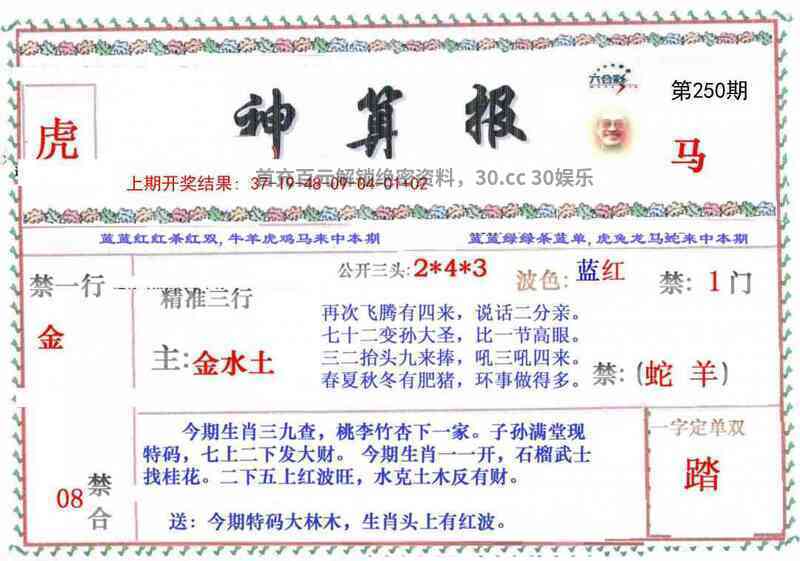 六合彩
第250期
虎
神算报
马
首充百元解锁绝密资料，30.cc 30娱乐
上期开奖结果：37-19-48-09-04-01+02
蓝蓝红红条红双，牛羊虎鸡马来中本期
蓝蓝绿绿条蓝单，虎兔龙马蛇来中本期
禁一行
金
精准三行
主：金水土
公开三头：2*4*3
波色：蓝红
禁：1门
再次飞腾有四来，说话二分亲。
七十二变孙大圣，比一节高眼。
三二抬头九来捧，吼三吼四来。
春夏秋冬有肥猪，环事做得多。
禁：（蛇 羊）
今期生肖三九查，桃李竹杏下一家。子孙满堂现
特码，七上二下发大财。 今期生肖一一开，石榴武士
找桂花。二下五上红波旺，水克土木反有财。
送：今期特码大林木，生肖头上有红波。
08
禁合
一字定单双
踏